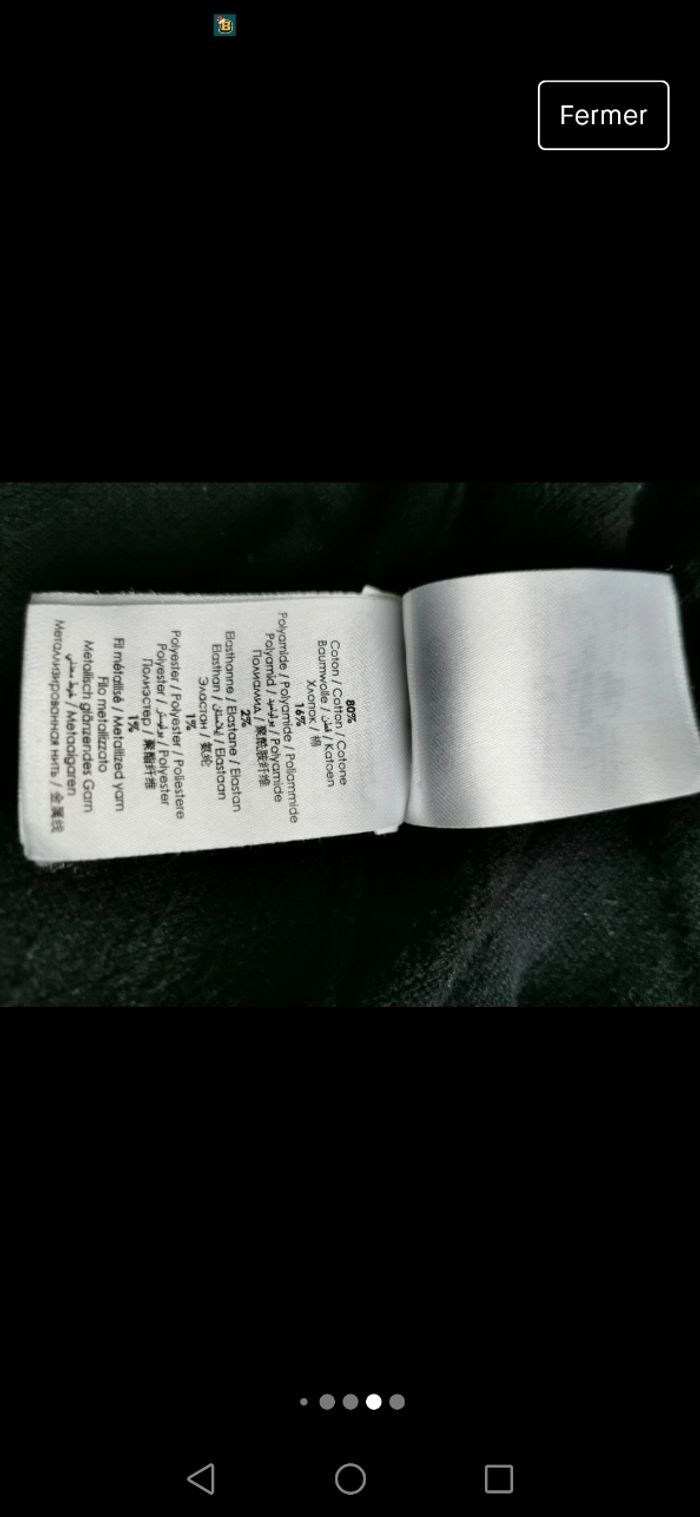 Fermer
80%
Coton / Cotton / Cotone
Baumwolle / قطن / Katoen
Хлопок / 棉
16%
Polyamide / Polyamide / Poliammide
Polyamid / بولياميد / Polyamide
Полиамид / 聚酰胺纤维
2%
Elasthanne / Elastane / Elastan
Elasthan / إيلاستان / Elastaan
Эластан / 氨纶
1%
Polyester / Polyester / Poliestere
Polyester / بوليستر / Polyester
Полиэстер / 聚酯纤维
1%
Fil métallisé / Metallized yarn
Filo metallizzato
Metallisch glänzendes Garn
خيوط معدني / Metaalgaren
Металлизированная нить / 金属线